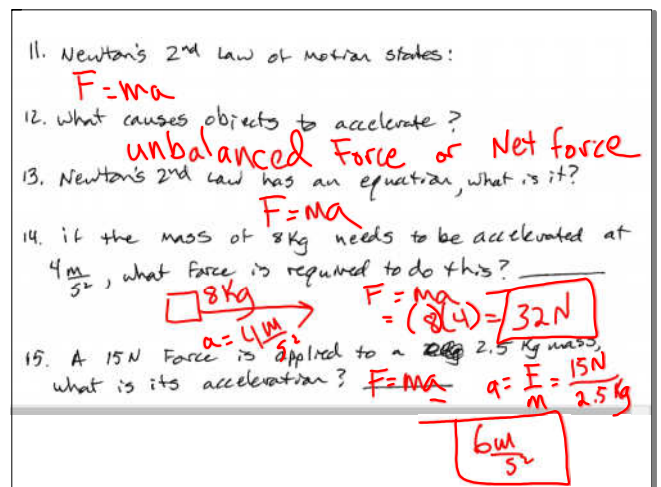 11. Newton's 2nd Law of Motion states:
F=ma
12. What causes objects to accelerate?
unbalanced Force or Net force
13. Newton's 2nd Law has an equation, what is it?
F=ma
14. if the mass of 8Kg needs to be accelerated at
4 m/s², what Force is required to do this?
8Kg
a=4 m/s²
F=ma
=(8)(4)= 32N
15. A 15N Force is applied to a 2.5 Kg mass,
what is its acceleration? F=ma a= F/m = 15N/2.5 Kg
6 m/s²